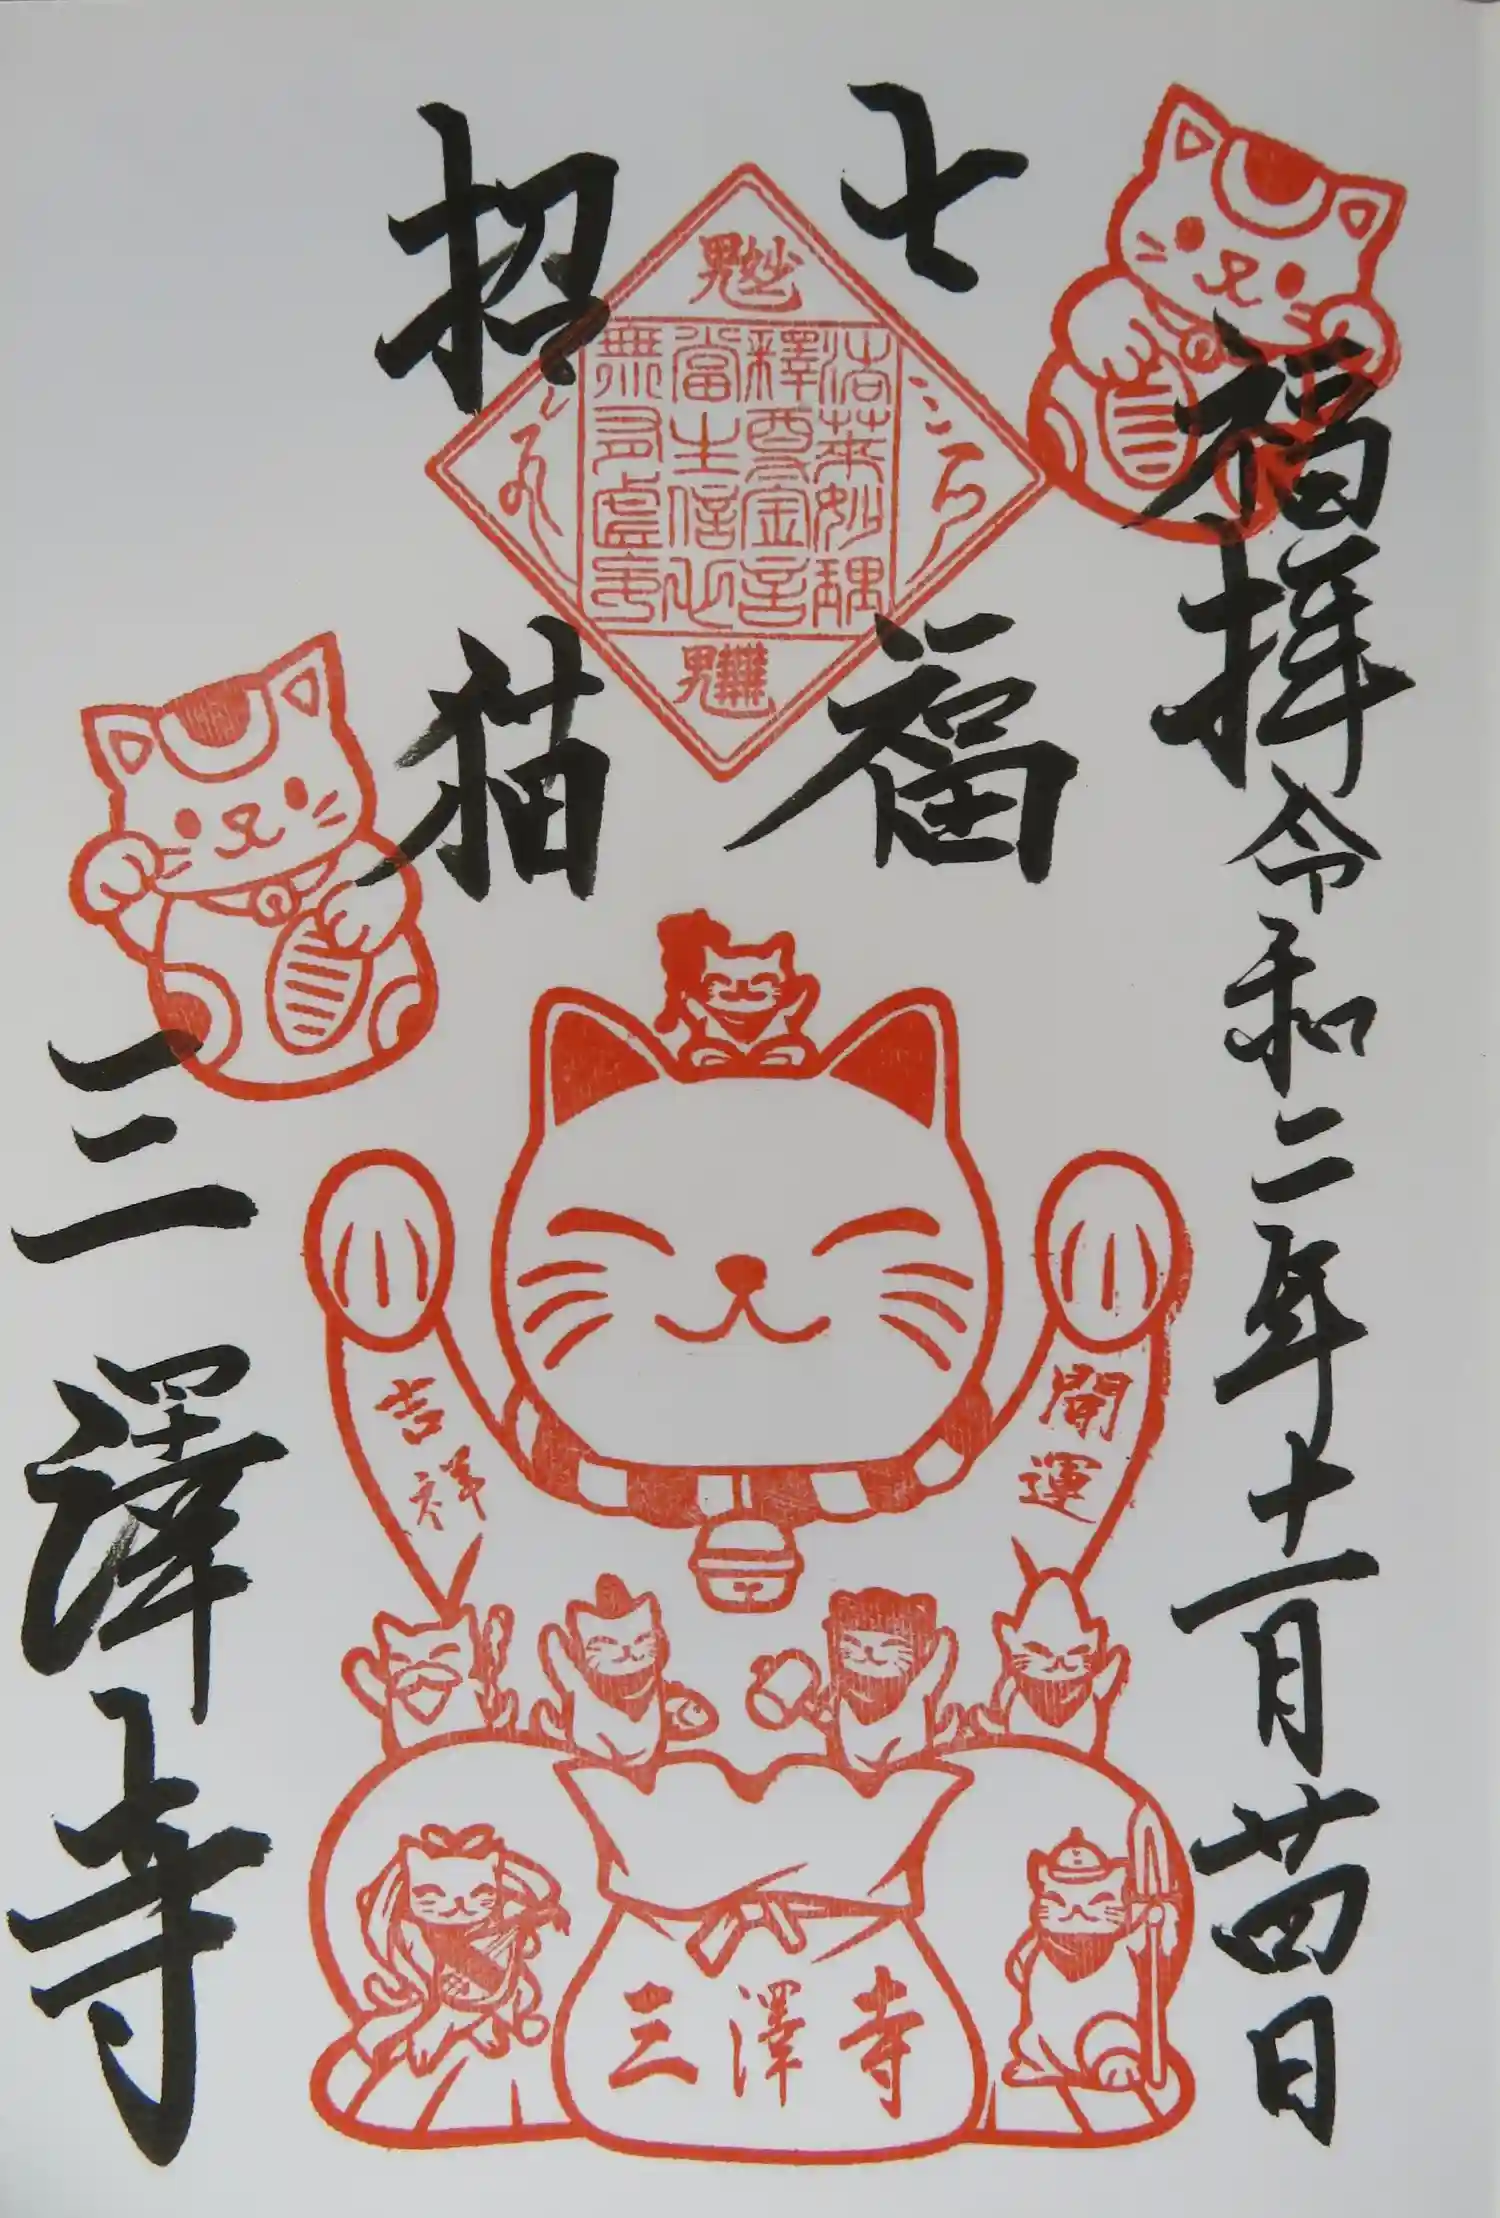 福拝令和二年十一月廿四日
七福
招猫
三澤寺
法華妙理
釋尊金言
當生信心
無有虚妄
開運
吉祥
三澤寺